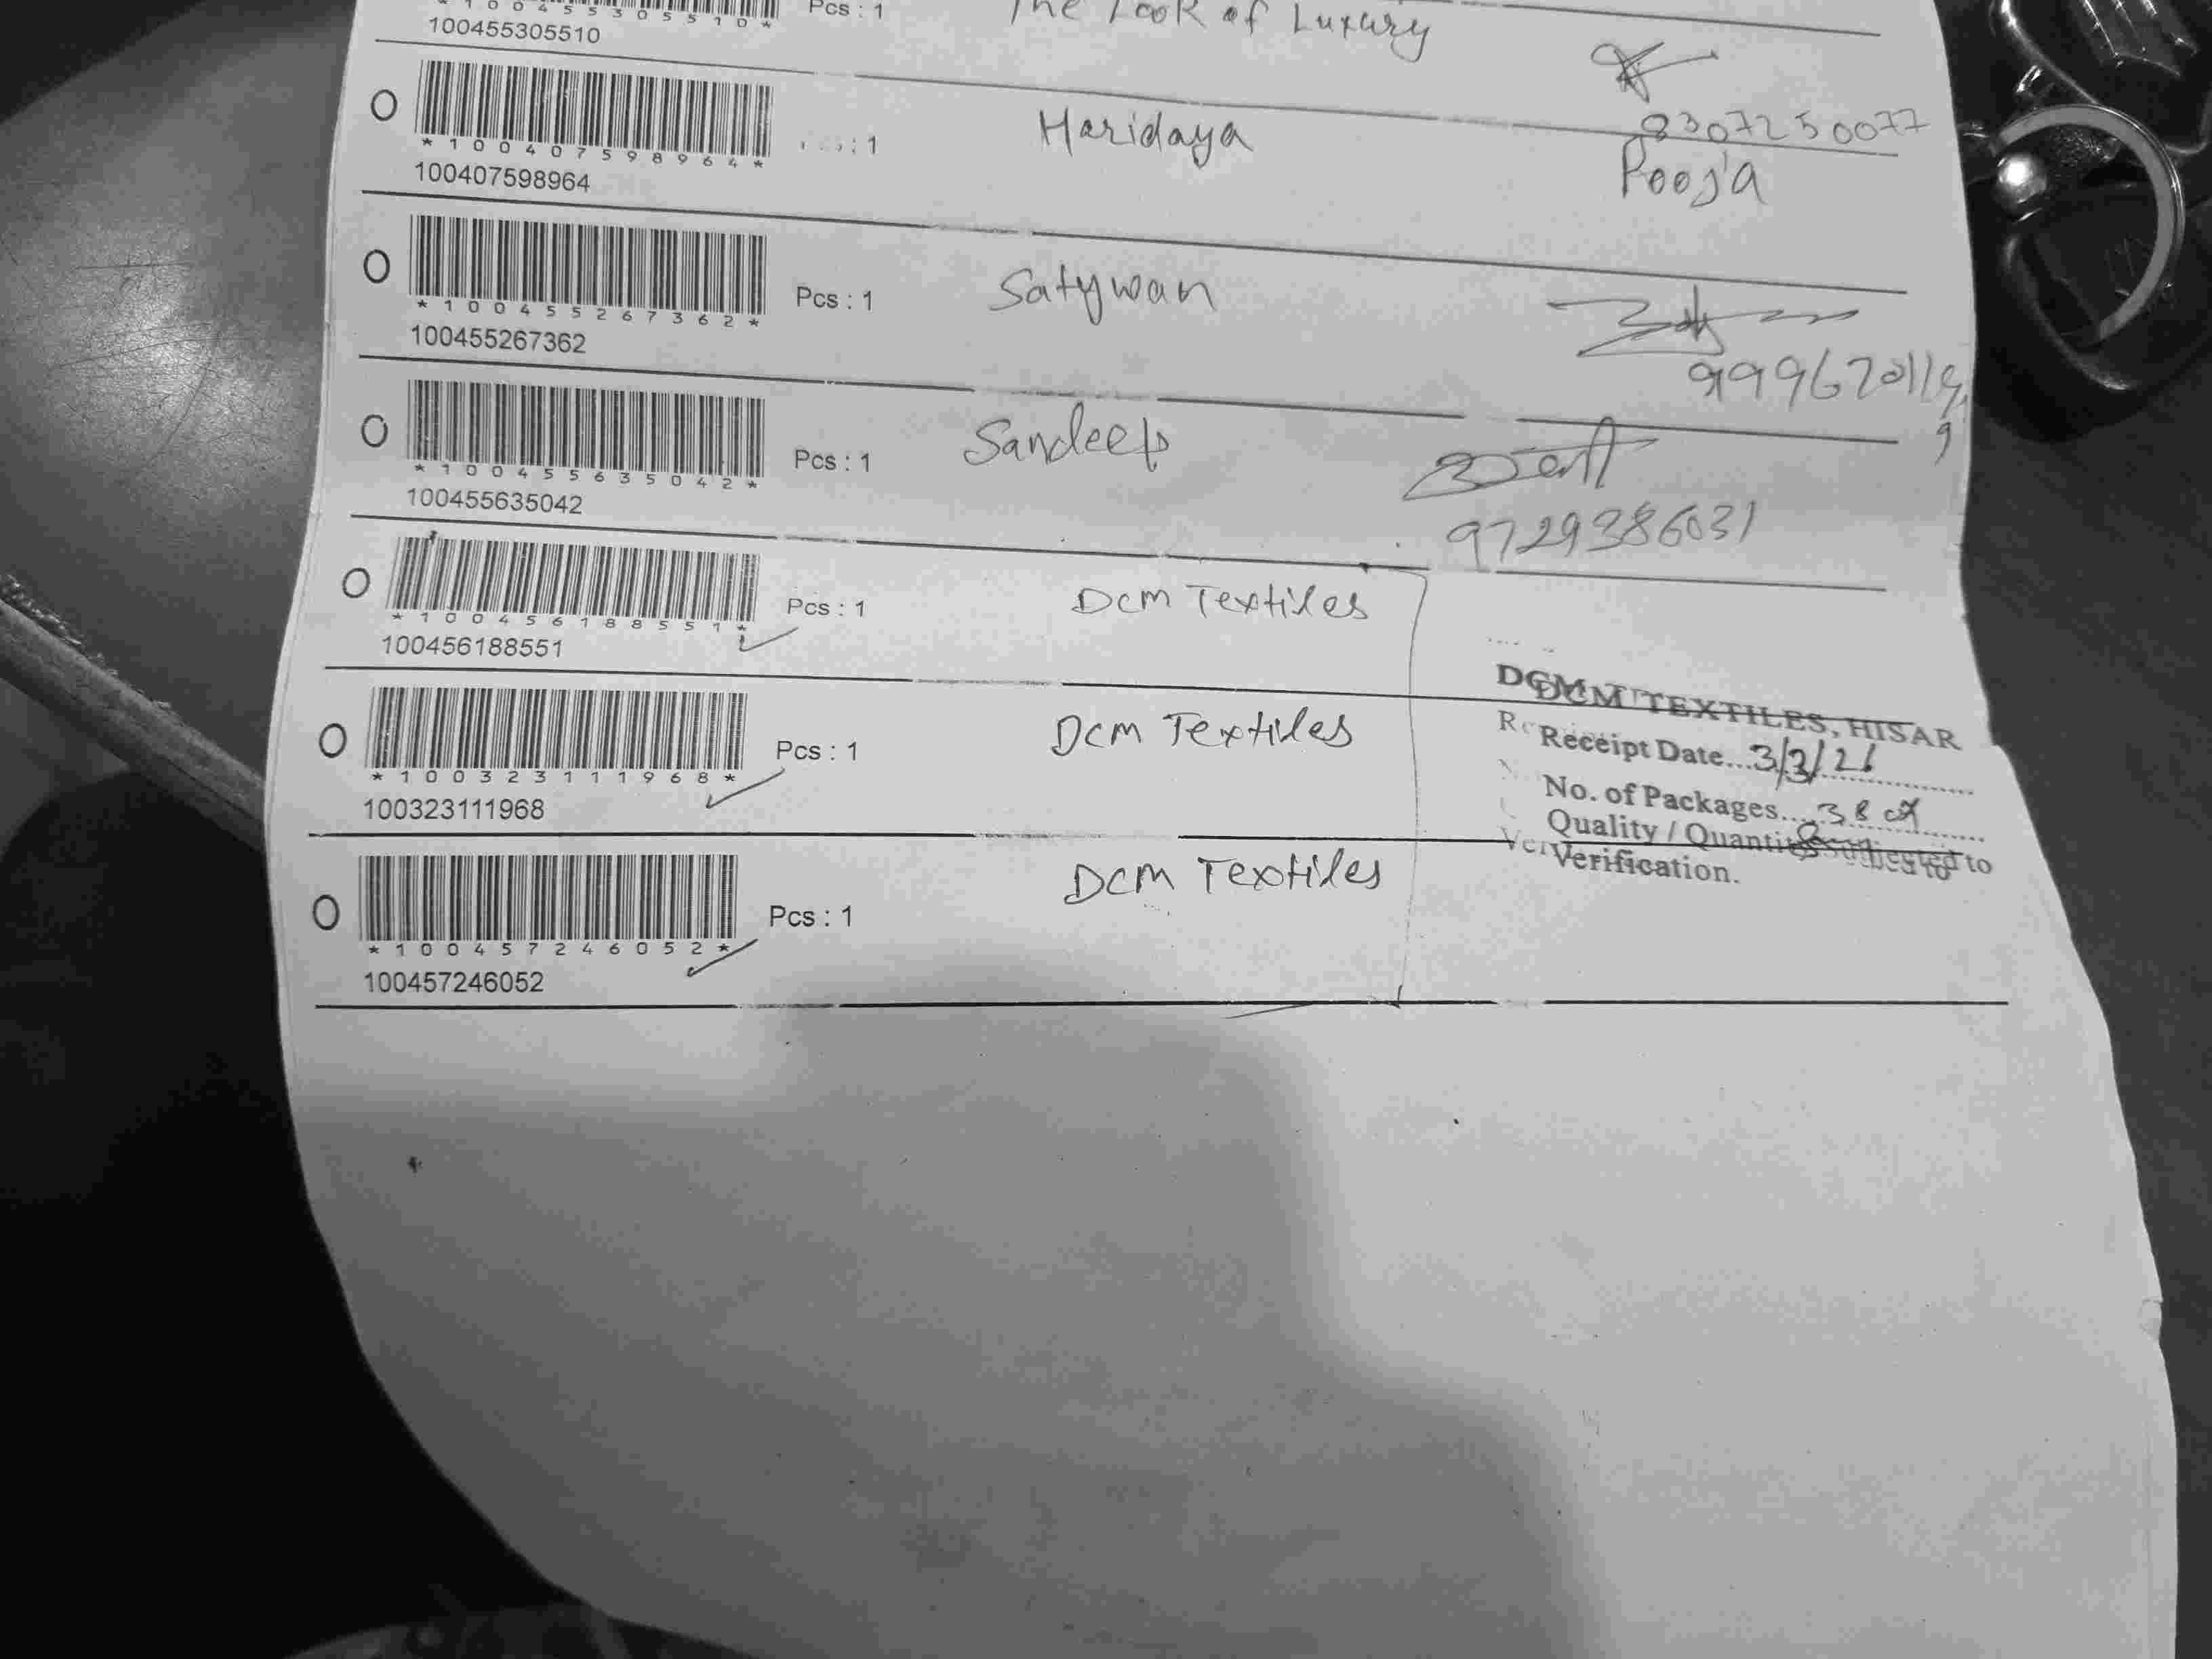 *100455305510*
Pcs : 1
The Look of Luxury
100455305510
*100407598964*
: 1
Haridaya
8307250077
Pooja
100407598964
*100455267362*
Pcs : 1
Satywan
100455267362
*100455635042*
Pcs : 1
Sandeep
9729386031
100455635042
*100456188551*
Pcs : 1
Dcm Textiles
100456188551
*100323111968*
Pcs : 1
Dcm Textiles
100323111968
DCM TEXTILES, HISAR
Receipt Date...3/3/21
No. of Packages....
Quality / Quantity Subjected to
Verification.
*100457246052*
Pcs : 1
Dcm Textiles
100457246052